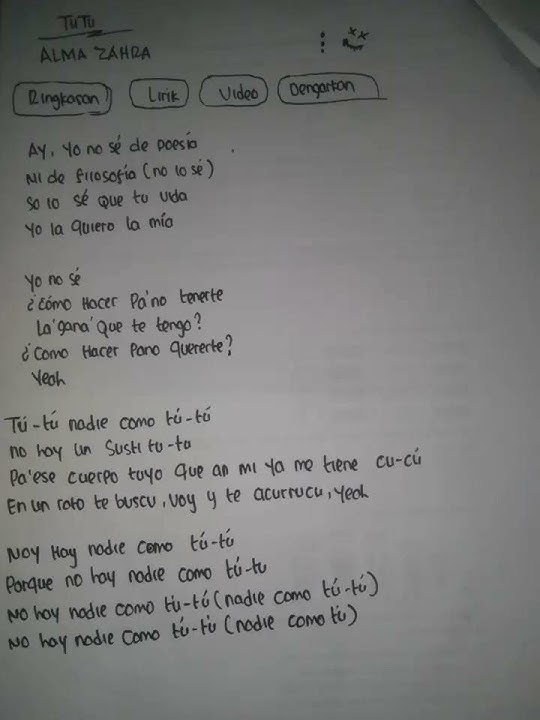 TUTU
ALMA ZAHRA
Ringkasan Lirik Video Dengarkan
Ay, Yo no sé de poesía
Ni de filosofía (no lo sé)
So lo sé que tu vida
Yo la quiero la mía
Yo no sé
¿Cómo Hacer Pa'no tenerte
La'gana'que te tengo?
¿Como Hacer Pano quererte?
Yeah
Tú-tú nadie como tú-tú
no hay un Susti tu-to
Pa'ese cuerpo tuyo que an mi ya me tiene cu-cú
En un rato te buscu, voy y te acurrucu, yeah
Noy Hay nadie como tú-tú
Porque no hay nadie como tú-tu
No hay nadie como tú-tú (nadie como tú-tú)
No hay nadie como tú-tú (nadie como tú)